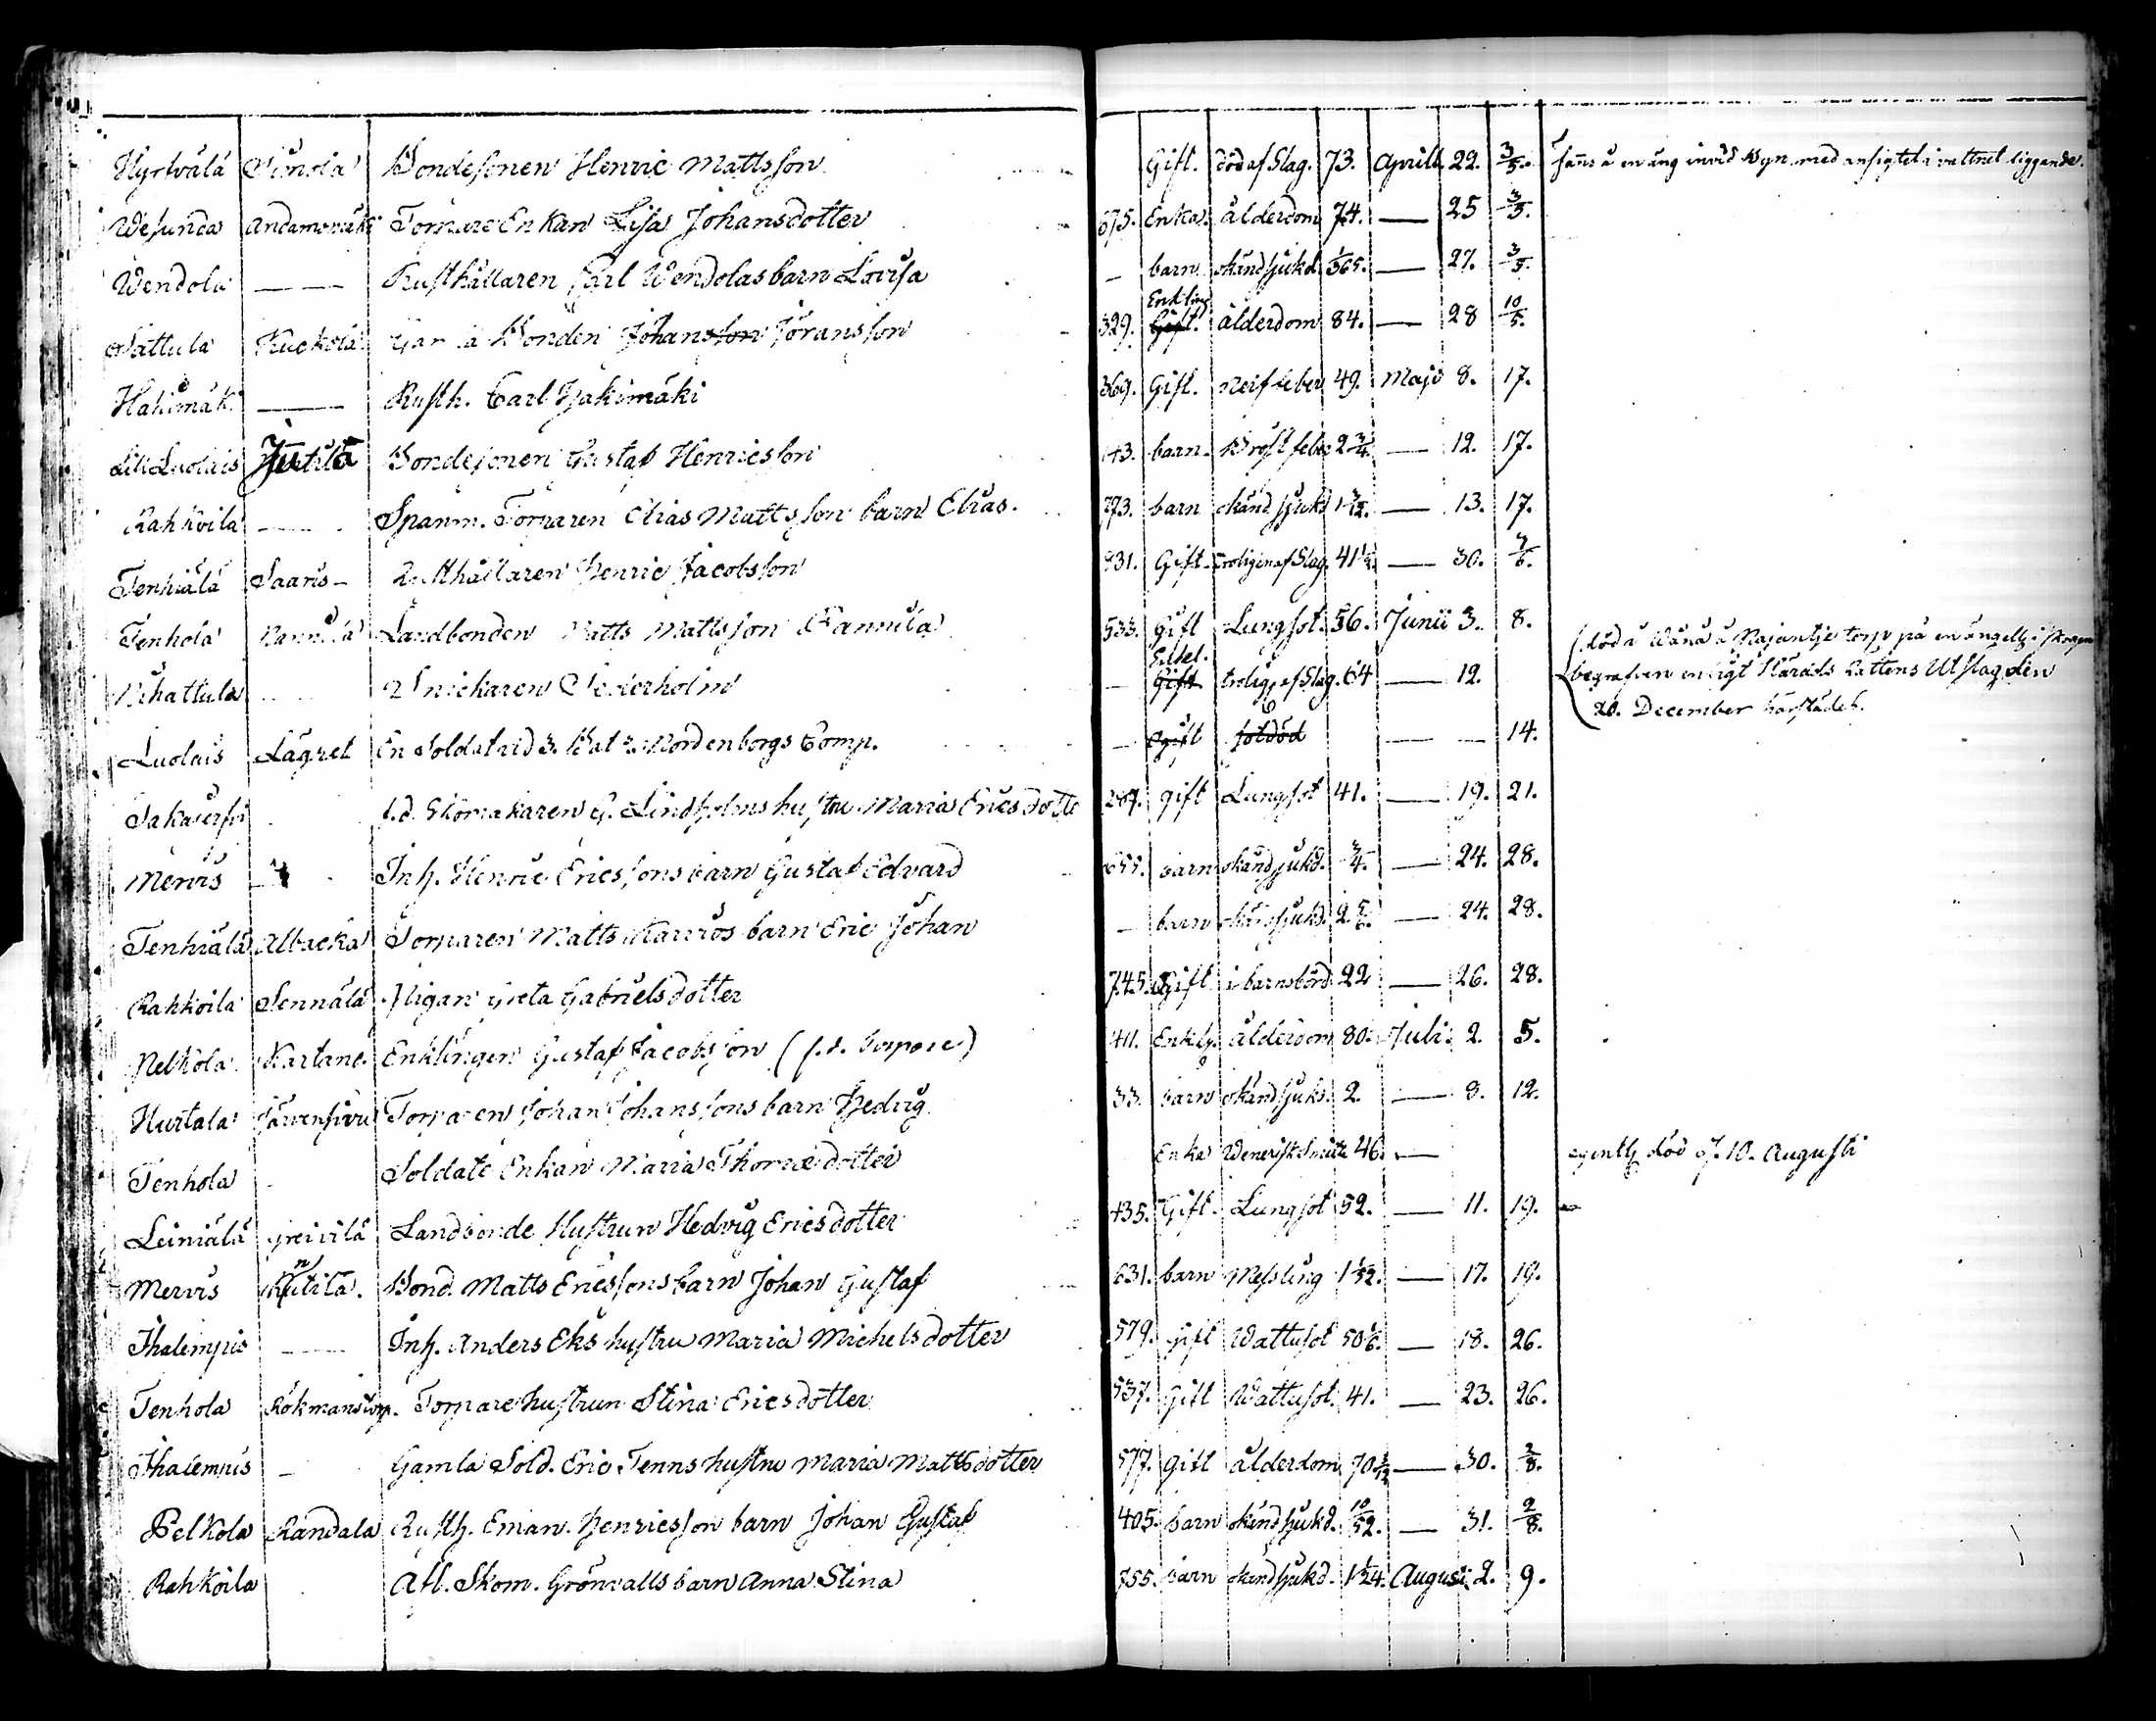 Hyrvälä Simola Bondesonen Henric Mattsson Gift. död af Slag. 73. Aprill 22. 3/5. fans å en äng invid Byn med ansigtet i vattnet liggande.
Wesunda Andamomäki Torpare Enkan Lisa Johansdotter 675. Enka. ålderdom 74. — 25 3/5.
Wendola — — Rusthållaren Carl Wendolas barn Lovisa — barn okänd sjukd. 1/365. — 27. 3/5.
Sattula Kuckola Gamla Bonden Johansson Göransson 329. Enkling Gift. ålderdom 84. — 28 10/5.
Hakimäki — Rusth. Carl Hakimäki 369. Gift. Nerffeber 49. Maji 8. 17.
Lill Luolais Jutila Bondesonen Gustaf Henricsson 143. barn. Bröstfeber 2 3/4. — 12. 17.
Rahkoila — Spanm. Torparen Elias Mattsson barn Elias. 773. barn okänd sjukd. — 13. 17.
Tenhiälä Saaris — Rusthållaren Henric Jacobsson 931. Gift. troligen af Slag. 41 — 30. 7/6.
Tenhola Pannila Landbonden Matts Mattsson Pannila 533. Gift Lungsot. 56. Junii 3. 8.
Mihattula Snickaren Sederholm — Gift trolig. af Slag. 64 — 12. (död i Wånå å Najantje torp på en ängell. i skogen
begrafven enligt Härads Rättens Utslag den
20. December härstädes.
Luolais Lägret En Soldat vid 3. Bat. Nordenborgs Comp. — Ogift sotdöd — — 14.
Sakasirfvi f.d. Skomakaren G. Lindholms hustru Maria Ericsdotte 287. gift Lungsot 41. — 19. 21.
Mervis — Inh. Henric Ericssons barn Gustaf Edvard 655. barn okänd sjukd. 3/4. — 24. 28.
Tenhiälä Albacka Torparen Matts Kauros barn Eric Johan — barn okänd sjukd. — 24. 28.
Rahkoila Sennälä Pigan Greta Gabrielsdotter 745. Ogift i barnsbörd 22 — 26. 28.
Pelkola Kartano Enklingen Gustaf Jacobsson 411. Enklg. ålderdom 80. Juli 2. 5.
Hurtala Järvensivu Torparen Johan Johanssons barn Hedvig 33. barn okänd sjukd. 2. — 8. 12.
Tenhola Soldats Enkan Maria Thomædotter Enka Venerisk Smitta 46. — egentlg död d. 10. Augusti
Leiniälä Greivilä Landbonde Hustrun Hedvig Ericsdotter 435. Gift. Lungsot 52. — 11. 19.
Mervis Bond. Matts Ericssons barn Johan Gustaf 631. barn Messling — 17. 19.
Ihalempis — Inh. Anders Eks hustru Maria Michelsdotter 579. gift Wattusot 50 1/6. — 18. 26.
Tenhola Rökmanstorp. Torpare hustrun Stina Ericsdotter 537. Gift Wattusot. 41. — 23. 26.
Ihalempis — Gamla Sold. Eric Tenns hustru Maria Mattsdotter 577. gift ålderdom 70 — 30. 2/8.
Pelkola Randala Rusth. Eman. Henricsson barn Johan Gustaf 405. barn okänd sjukd. 10/52. — 31. 2/8.
Rahkoila Afl. Skom. Grönvalls barn Anna Stina 755. barn okänd sjukd. 1 1/24. Augusti 2. 9.